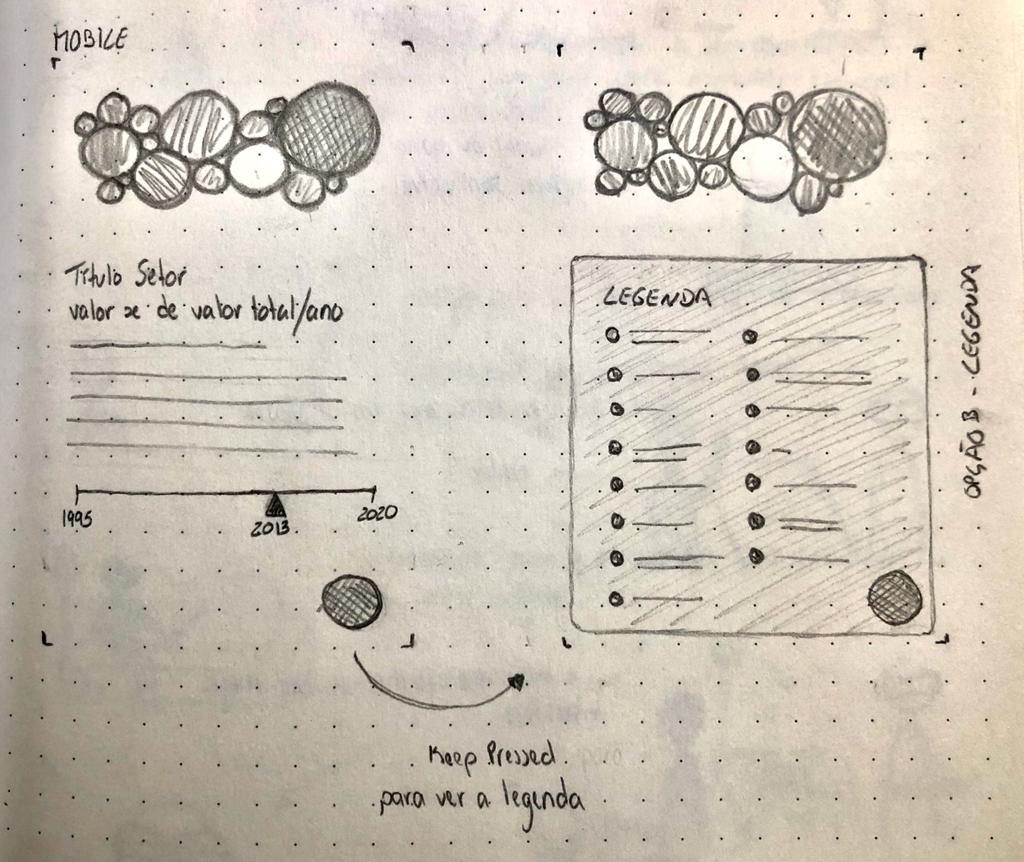 MOBILE
Título Setor
valor x de valor total/ano
1995
2013
2020
LEGENDA
OPÇÃO B - LEGENDA
Keep Pressed
para ver a legenda